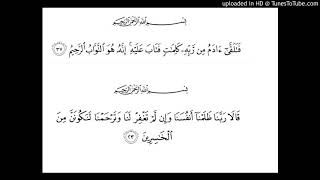 uploaded in HD @ TunesToTube.com
بِسْمِ اللَّهِ الرَّحْمَٰنِ الرَّحِيمِ
فَتَلَقَّىٰٓ ءَادَمُ مِن رَّبِّهِۦ كَلِمَٰتٍ فَتَابَ عَلَيْهِ ۚ إِنَّهُۥ هُوَ التَّوَّابُ الرَّحِيمُ ٣٧
بِسْمِ اللَّهِ الرَّحْمَٰنِ الرَّحِيمِ
قَالَا رَبَّنَا ظَلَمْنَآ أَنفُسَنَا وَإِن لَّمْ تَغْفِرْ لَنَا وَتَرْحَمْنَا لَنَكُونَنَّ مِنَ
الْخَٰسِرِينَ ٢٣